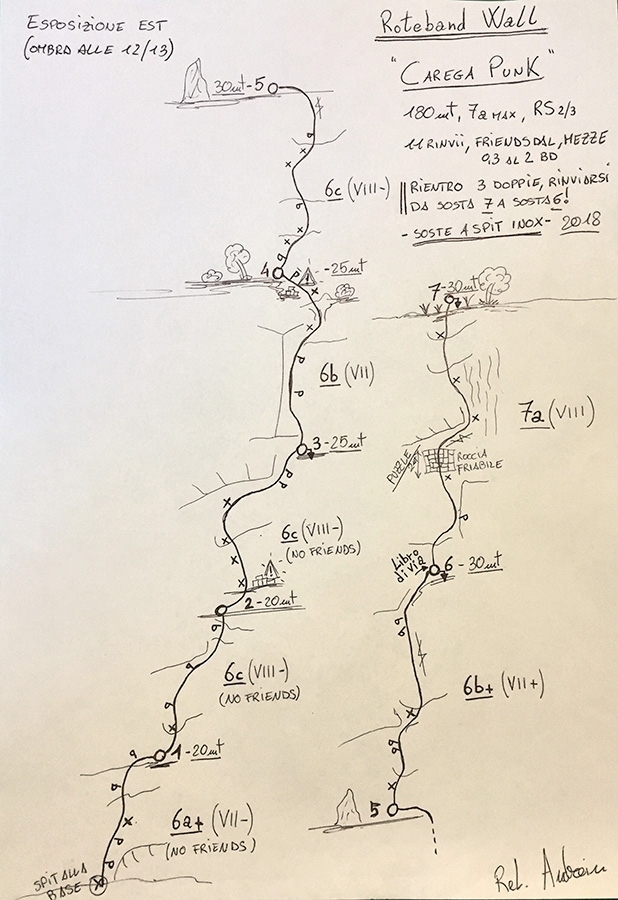 ESPOSIZIONE EST
(OMBRA ALLE 12/13)
Roteband Wall
"CAREGA PUNK"
180mt, 7a MAX, RS2/3
11 RINVII, FRIENDS DAL, MEZZE
0,3 AL 2 BD
RIENTRO 3 DOPPIE, RINVIARSI
DA SOSTA 7 A SOSTA 6!
- SOSTE A SPIT INOX - 2018
30mt - 5
6c (VIII-)
4 - 25mt
6b (VII)
3 - 25mt
6c (VIII-)
(NO FRIENDS)
2 - 20mt
6c (VIII-)
(NO FRIENDS)
1 - 20mt
6a+ (VII-)
(NO FRIENDS)
SPIT ALLA
BASE
7 - 30mt
7a (VIII)
PUZZLE
ROCCIA
FRIABILE
Libro
di via
6 - 30mt
6b+ (VII+)
5
Rel.